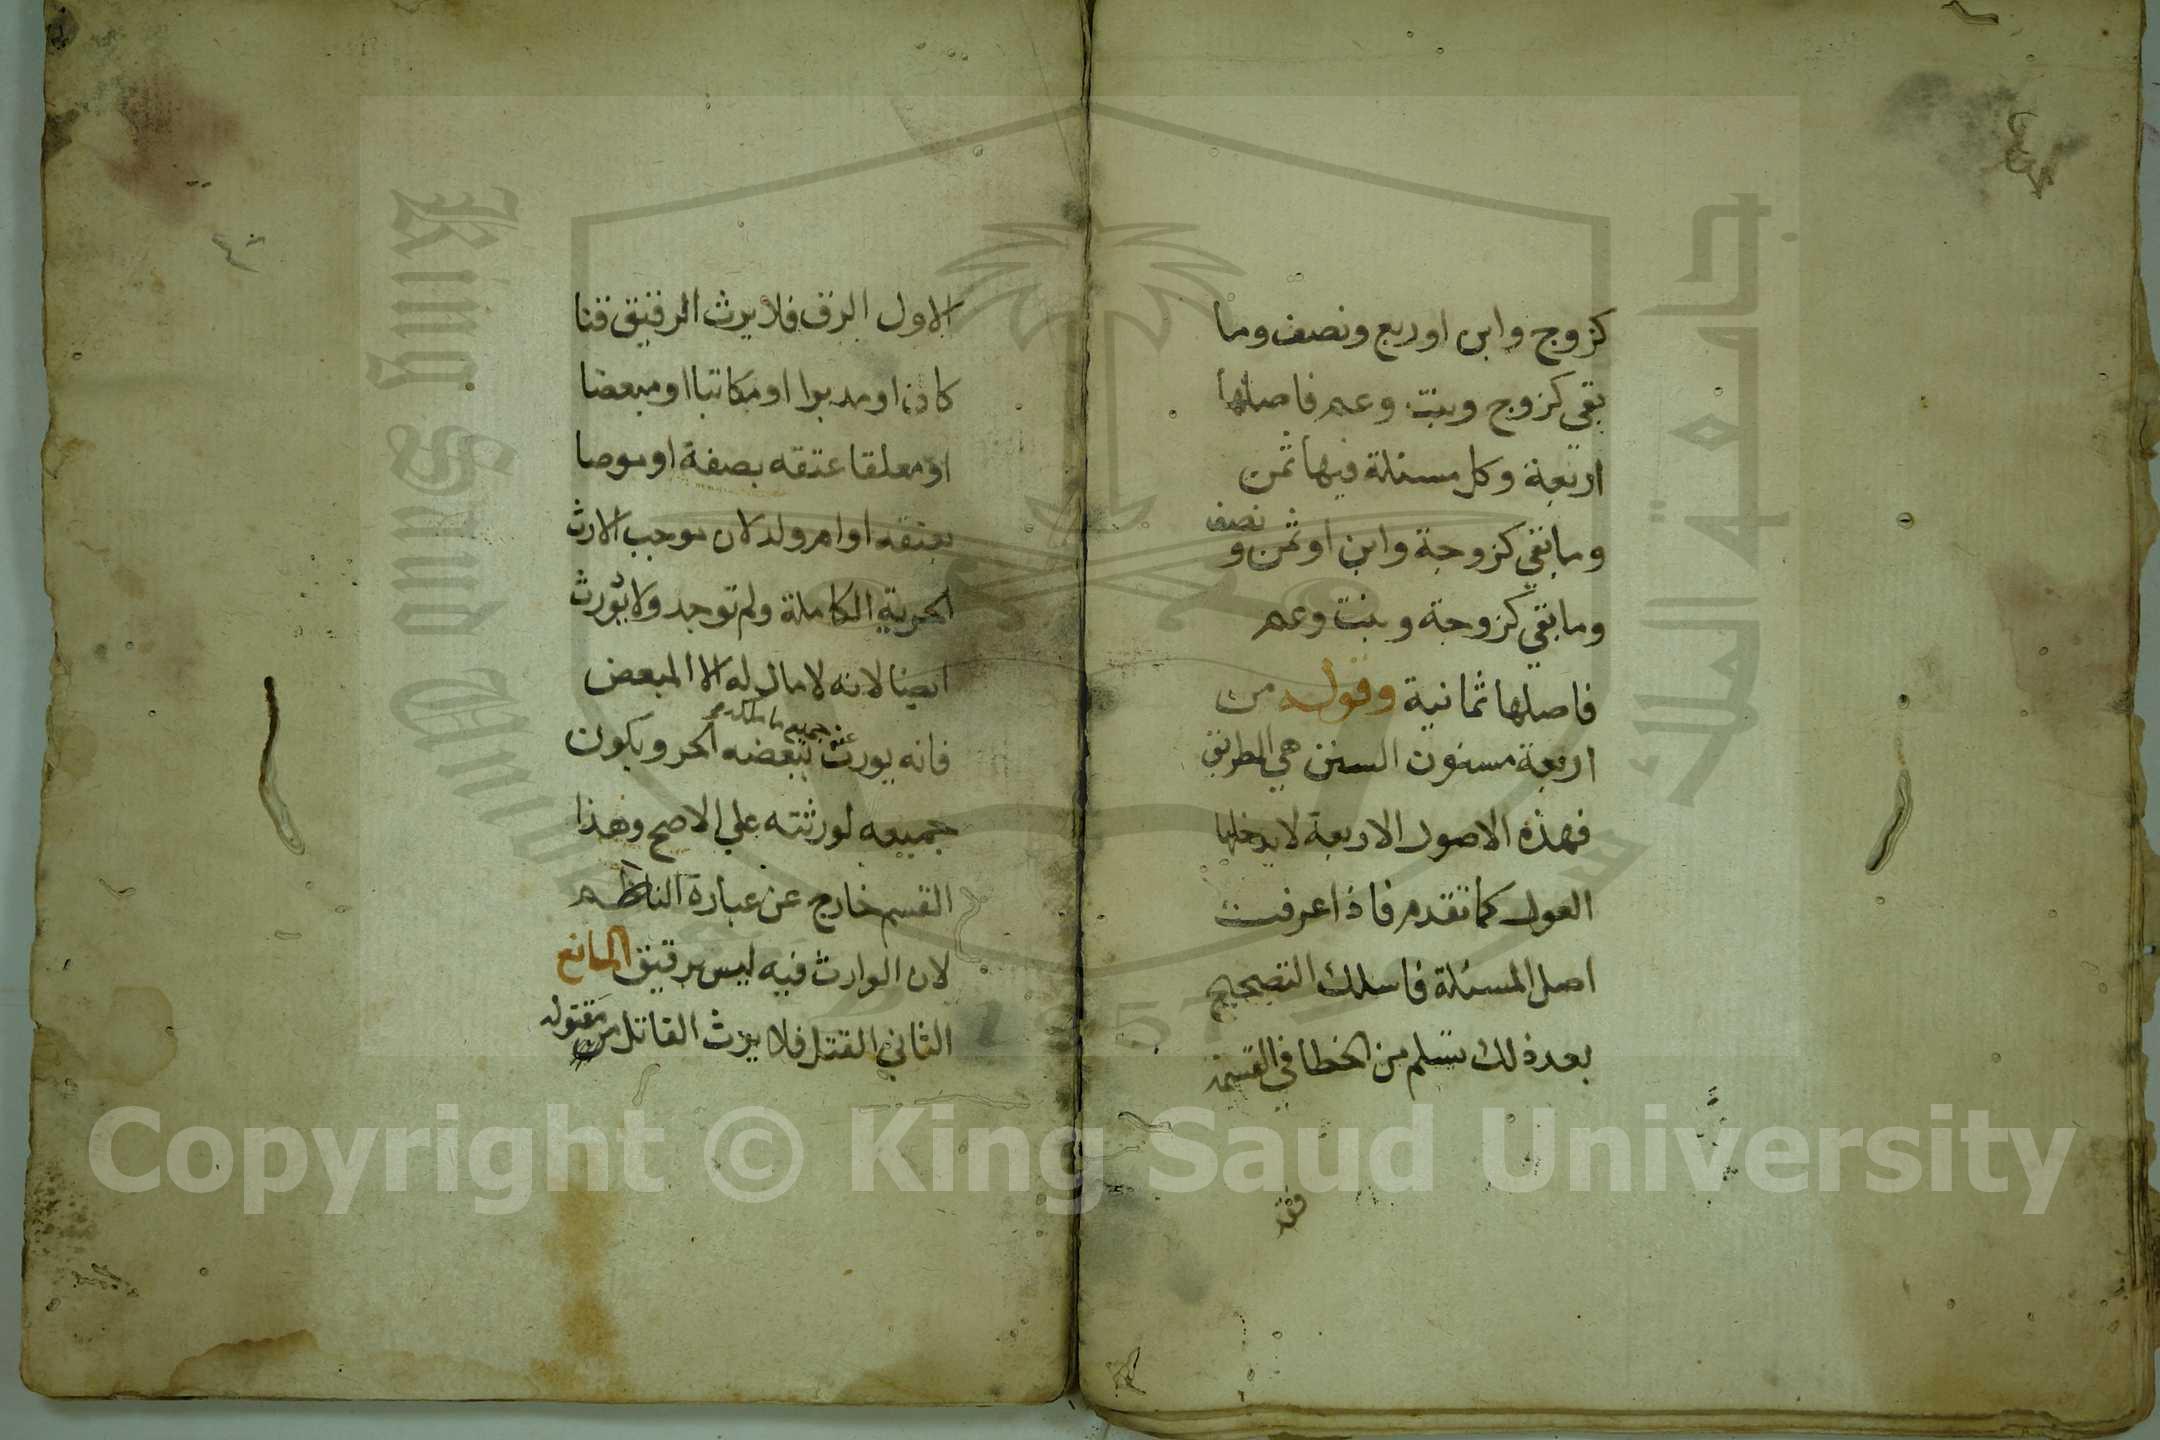 كزوج وابن او ربع ونصف وما
بقي كزوج وبنت وعم فاصلها
اربعة وكل مسئلة فيها ثمن
وما بقي كزوجة وابن او ثمن و نصف
وما بقي كزوجة وبنت وعم
فاصلها ثمانية وقوله من
اربعة مسنون السنن هي الطريق
فهذه الاصول الاربعة لا يدخلها
العول كما تقدم فاذا عرفت
اصل المسئلة فاسلك التصحيح
بعد ذلك تسلم من الخطا في القسمة
الاول الرق فلا يرث الرقيق قنا
كان او مدبرا او مكاتبا او مبعضا
او معلقا عتقه بصفة او موصا
بعتقه او ام ولد لان موجب الارث
الحرية الكاملة ولم توجد ولا يورث
ايضا لانه لا مال له الا المبعض
فانه يورث عنه جميع ما ملكه ببعضه الحر ويكون
جميعه لورثته علي الاصح وهذا
القسم خارج عن عبارة الناظم
لان الوارث فيه ليس برقيق المانع
الثاني القتل فلا يرث القاتل من مقتوله
King Saud University
جامعة الملك سعود
1957
Copyright © King Saud University